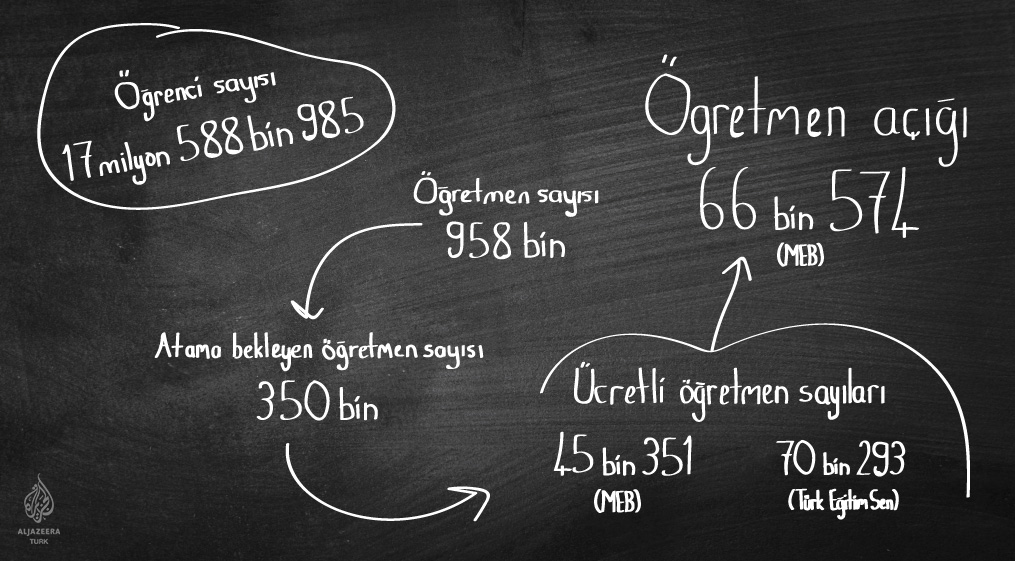 Öğrenci sayısı
17 milyon 588 bin 985
Öğretmen sayısı
958 bin
Atama bekleyen öğretmen sayısı
350 bin
Ücretli öğretmen sayıları
45 bin 351
(MEB)
70 bin 293
(Türk Eğitim Sen)
Öğretmen açığı
66 bin 574
(MEB)
ALJAZEERA
TURK